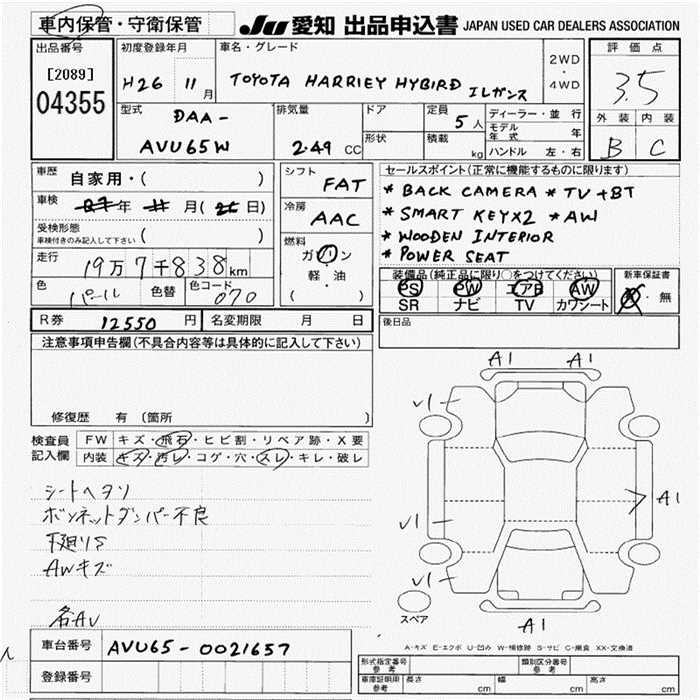 車内保管・守衛保管
JU 愛知 出品申込書 JAPAN USED CAR DEALERS ASSOCIATION
出品番号
[2089]
04355
初度登録年月
H26 11月
車名・グレード
TOYOTA HARRIEY HYBIRD エレガンス
2WD
・
4WD
評価点
3.5
外装 内装
B C
型式
DAA-
AVU65W
排気量
2.49 CC
ドア
形状
定員
5人
積載
kg
ディーラー・並行
モデル年式 年
ハンドル 左・右
車歴 自家用・( )
車検 年 月( 日)
受検形態
車検付きのみ記入して下さい ( )
走行 19万7千838km
色 パール 色替 色コード 070
シフト
FAT
冷房
AAC
燃料
ガソリン
軽・油
( )
セールスポイント(正常に機能するものに限ります)
* BACK CAMERA * TV + BT
* SMART KEYX2 * AW
* WOODEN INTERIOR
* POWER SEAT
装備品(純正品に限り○をつけてください)
PS PW エアB AW
SR ナビ TV カワシート
新車保証書
有・無
R券 12550 円 名変期限 月 日
後日品
注意事項申告欄(不具合内容等は具体的に記入して下さい)
修復歴 有 〔箇所
検査員記入欄
FW キズ・飛石・ヒビ割・リペア跡・X要
内装 キズ・汚レ・コゲ・穴・スレ・キレ・破レ
シートヘタリ
ボンネットダンパー不良
下廻りS
AWキズ
各AU
A1 A1
√1
A1
√1
√1
A1
スペア
A-キズ E-エクボ U-凹み W-補修跡 S-サビ C-腐食 XX-交換済
車台番号 AVU65-0021657
登録番号
形式指定番号
参考
類別区分番号
参考
車庫証明用
参考
長さ cm 幅 cm 高さ cm